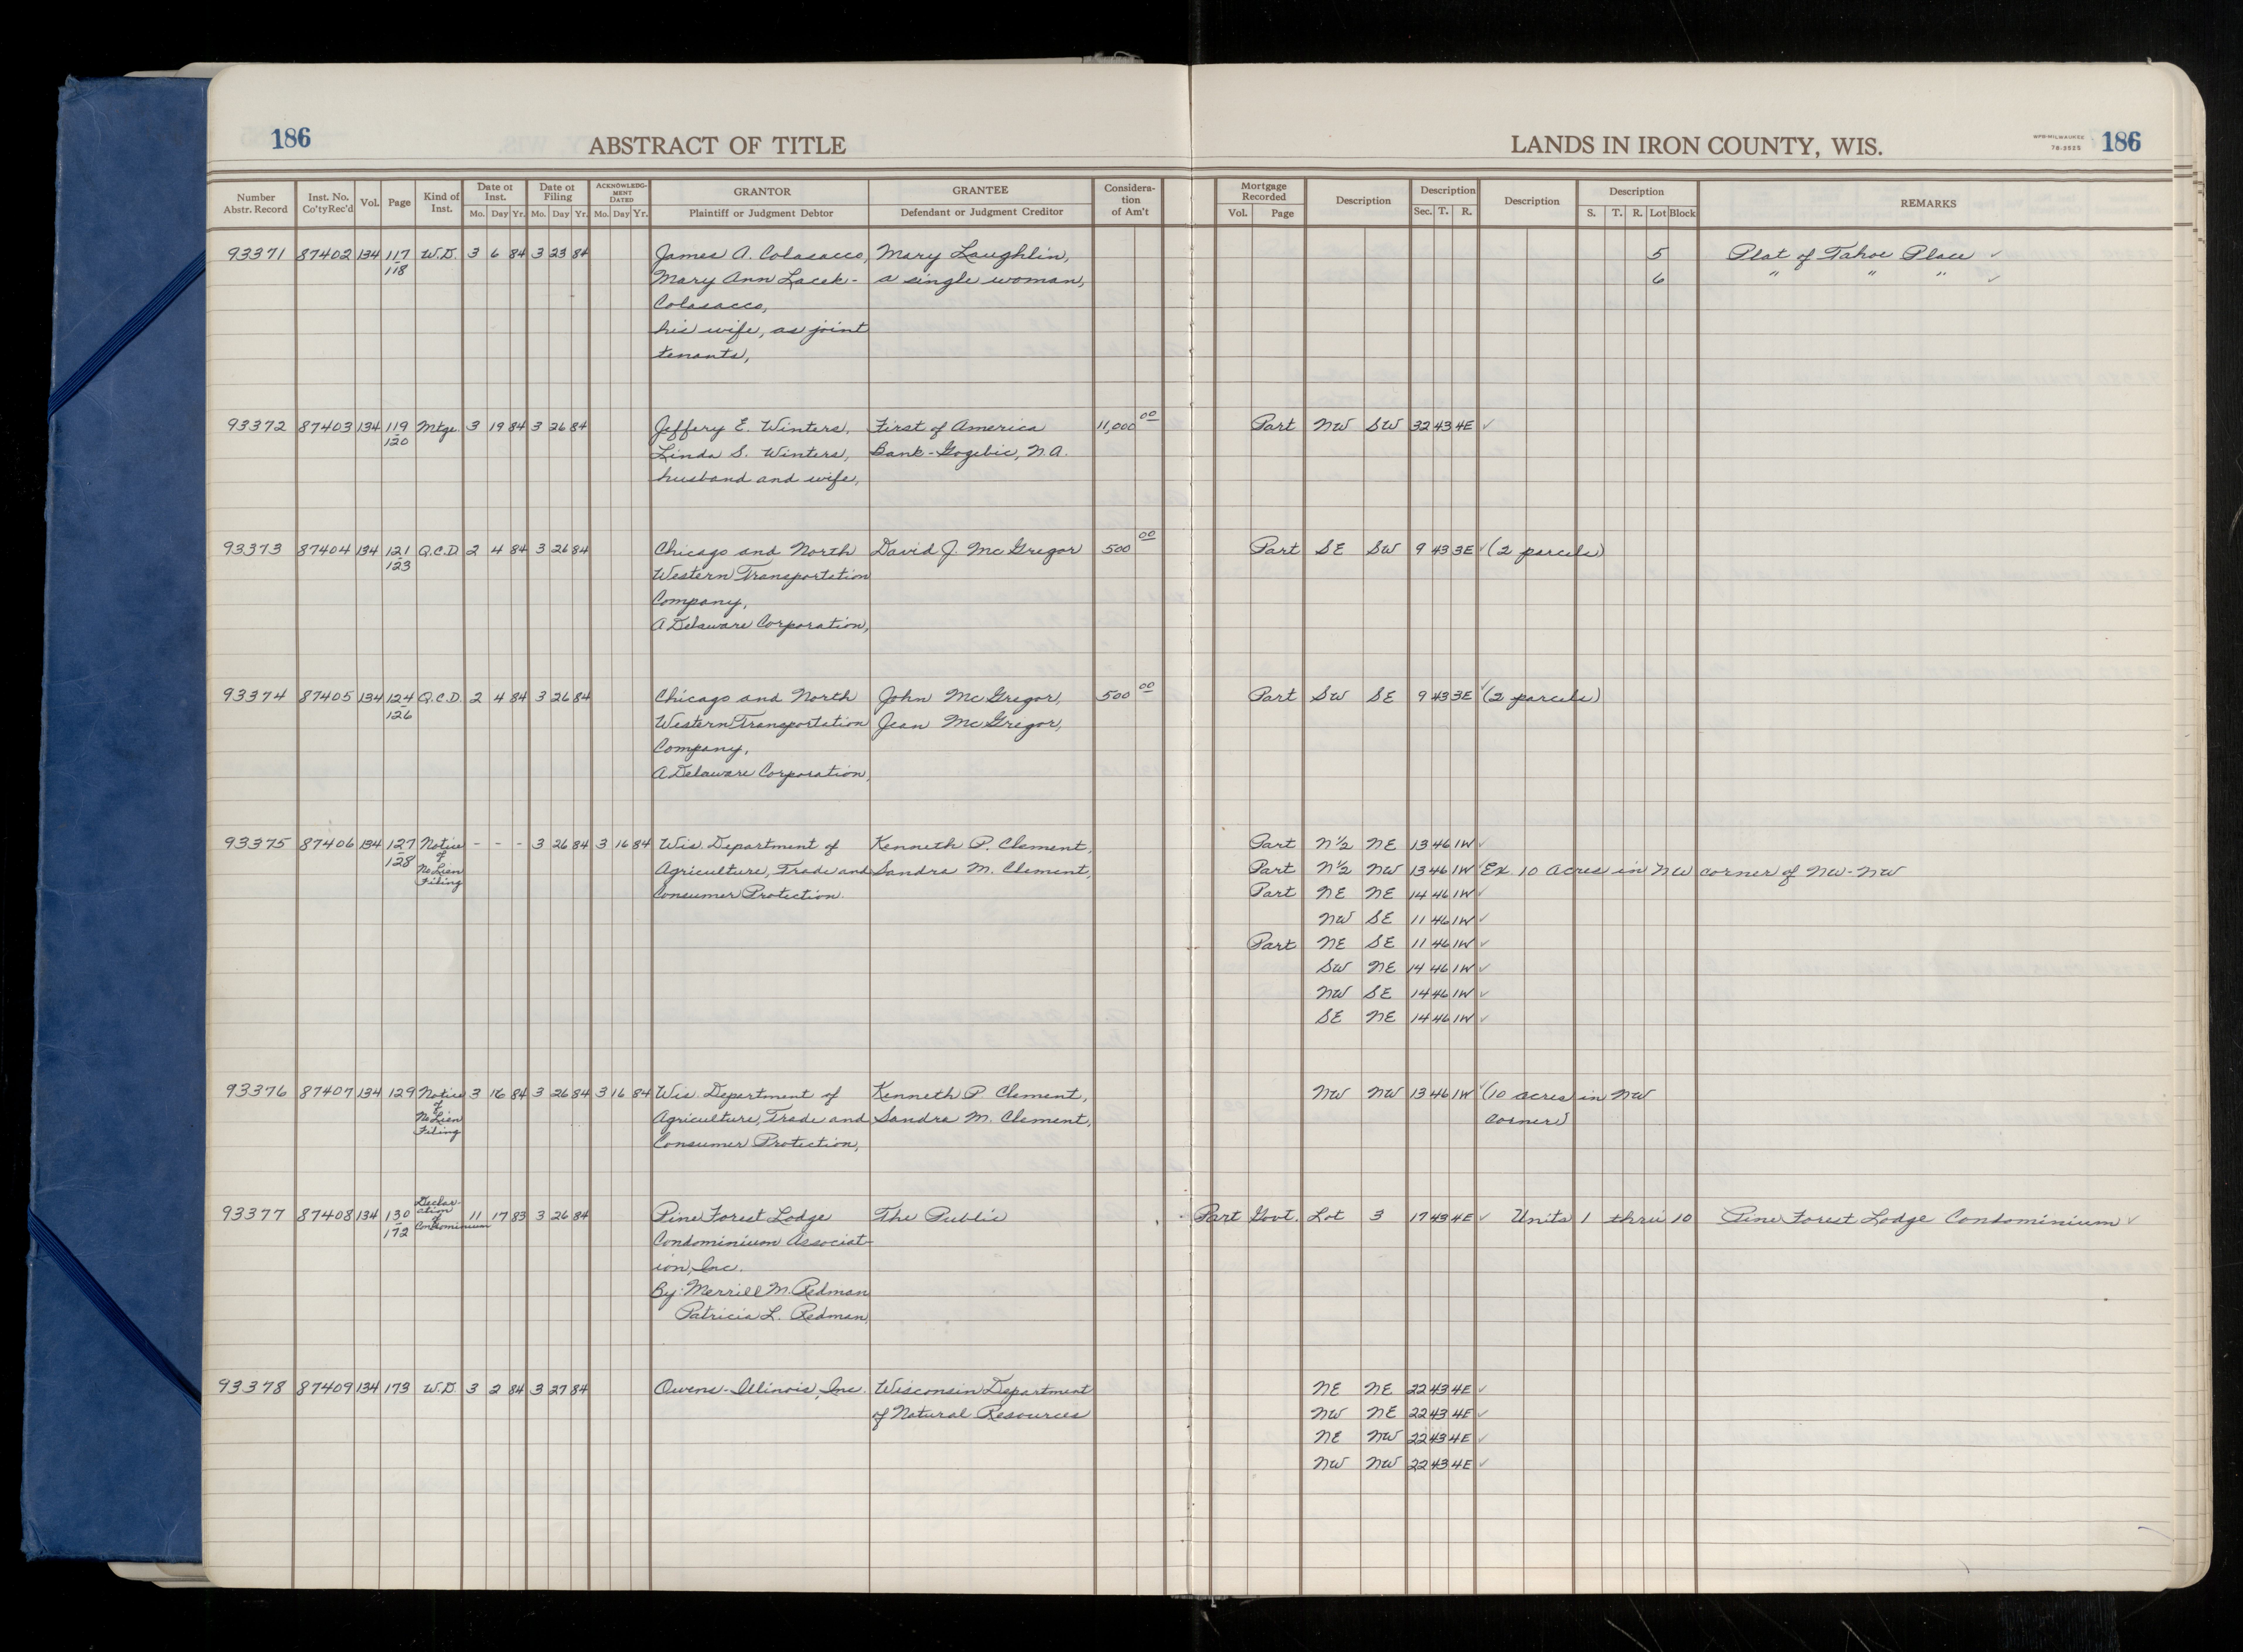 186 ABSTRACT OF TITLE LANDS IN IRON COUNTY, WIS. WPB-MILWAUKEE 78-3525 186
Number Abstr. Record Inst. No. Co'tyRec'd Vol. Page Kind of Inst. Date of Inst. Mo. Day Yr. Date of Filing Mo. Day Yr. ACKNOWLEDGMENT DATED Mo. Day Yr. GRANTOR Plaintiff or Judgment Debtor GRANTEE Defendant or Judgment Creditor Consideration of Am't Mortgage Recorded Vol. Page Description Description Sec. T. R. Description Description S. T. R. Lot Block REMARKS
93371 87402 134 117 W.D. 3 6 84 3 23 84 James A. Colasacco, Mary Laughlin, 5 Plat of Tahoe Place ✓
118 Mary Ann Lacek- a single woman, 6 " " " ✓
Colasacco,
his wife, as joint
tenants,
93372 87403 134 119 Mtge. 3 19 84 3 26 84 Jeffery E. Winters, First of America 11,000 00 Part NW SW 32 43 4E ✓
120 Linda S. Winters, Bank-Gogebic, N.A.
husband and wife,
93373 87404 134 121 Q.C.D. 2 4 84 3 26 84 Chicago and North David J. McGregor 500 00 Part SE SW 9 43 3E ✓ (2 parcels)
123 Western Transportation
Company,
A Delaware Corporation,
93374 87405 134 124 Q.C.D. 2 4 84 3 26 84 Chicago and North John McGregor, 500 00 Part SW SE 9 43 3E ✓ (2 parcels)
126 Western Transportation Jean McGregor,
Company,
A Delaware Corporation,
93375 87406 134 127 Notice - - - 3 26 84 3 16 84 Wis. Department of Kenneth P. Clement, Part N½ NE 13 46 1W ✓
128 of No Lien Filing Agriculture, Trade and Sandra M. Clement, Part N½ NW 13 46 1W ✓ Ex. 10 acres in NW corner of NW-NW
Consumer Protection. Part NE NE 14 46 1W ✓
NW SE 11 46 1W ✓
Part NE SE 11 46 1W ✓
SW NE 14 46 1W ✓
NW SE 14 46 1W ✓
SE NE 14 46 1W ✓
93376 87407 134 129 Notice 3 16 84 3 26 84 3 16 84 Wis. Department of Kenneth P. Clement, NW NW 13 46 1W ✓ (10 acres in NW
of No Lien Filing Agriculture, Trade and Sandra M. Clement, corner)
Consumer Protection,
93377 87408 134 130 Declaration of Condominium 11 17 83 3 26 84 Pine Forest Lodge The Public Part Govt. Lot 3 17 43 4E ✓ Units 1 thru 10 Pine Forest Lodge Condominium ✓
172 Condominium Associat-
ion, Inc.
By: Merrill M. Redman
Patricia L. Redman,
93378 87409 134 173 W.D. 3 2 84 3 27 84 Owens-Illinois, Inc. Wisconsin Department NE NE 22 43 4E ✓
of Natural Resources NW NE 22 43 4E ✓
NE NW 22 43 4E ✓
NW NW 22 43 4E ✓